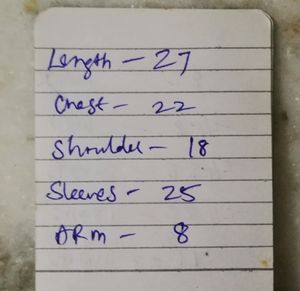 Length - 27
Chest - 22
Shoulder - 18
Sleeves - 25
ARM - 8